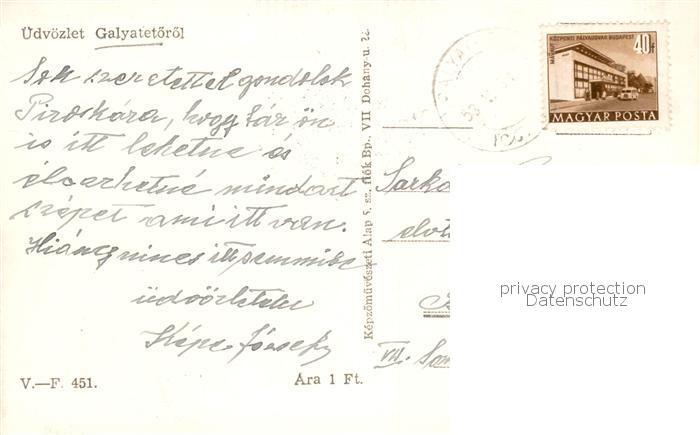 Üdvözlet Galyatetőről
Sok szeretettel gondolok
Piroskára, hogy bár ön
is itt lehetne és
élvezhetné mindazt
szépet ami itt van.
Hiány nincs itt semmiben
üdvözlettel
Képe József
V.—F. 451.
Ára 1 Ft.
Képzőművészeti Alap 5. sz. fiók Bp., VII Dohány-u. 22
MÁVAUT KÖZPONTI PÁLYAUDVAR BUDAPEST
40f
MAGYAR POSTA
Sarka
VII.
privacy protection
Datenschutz